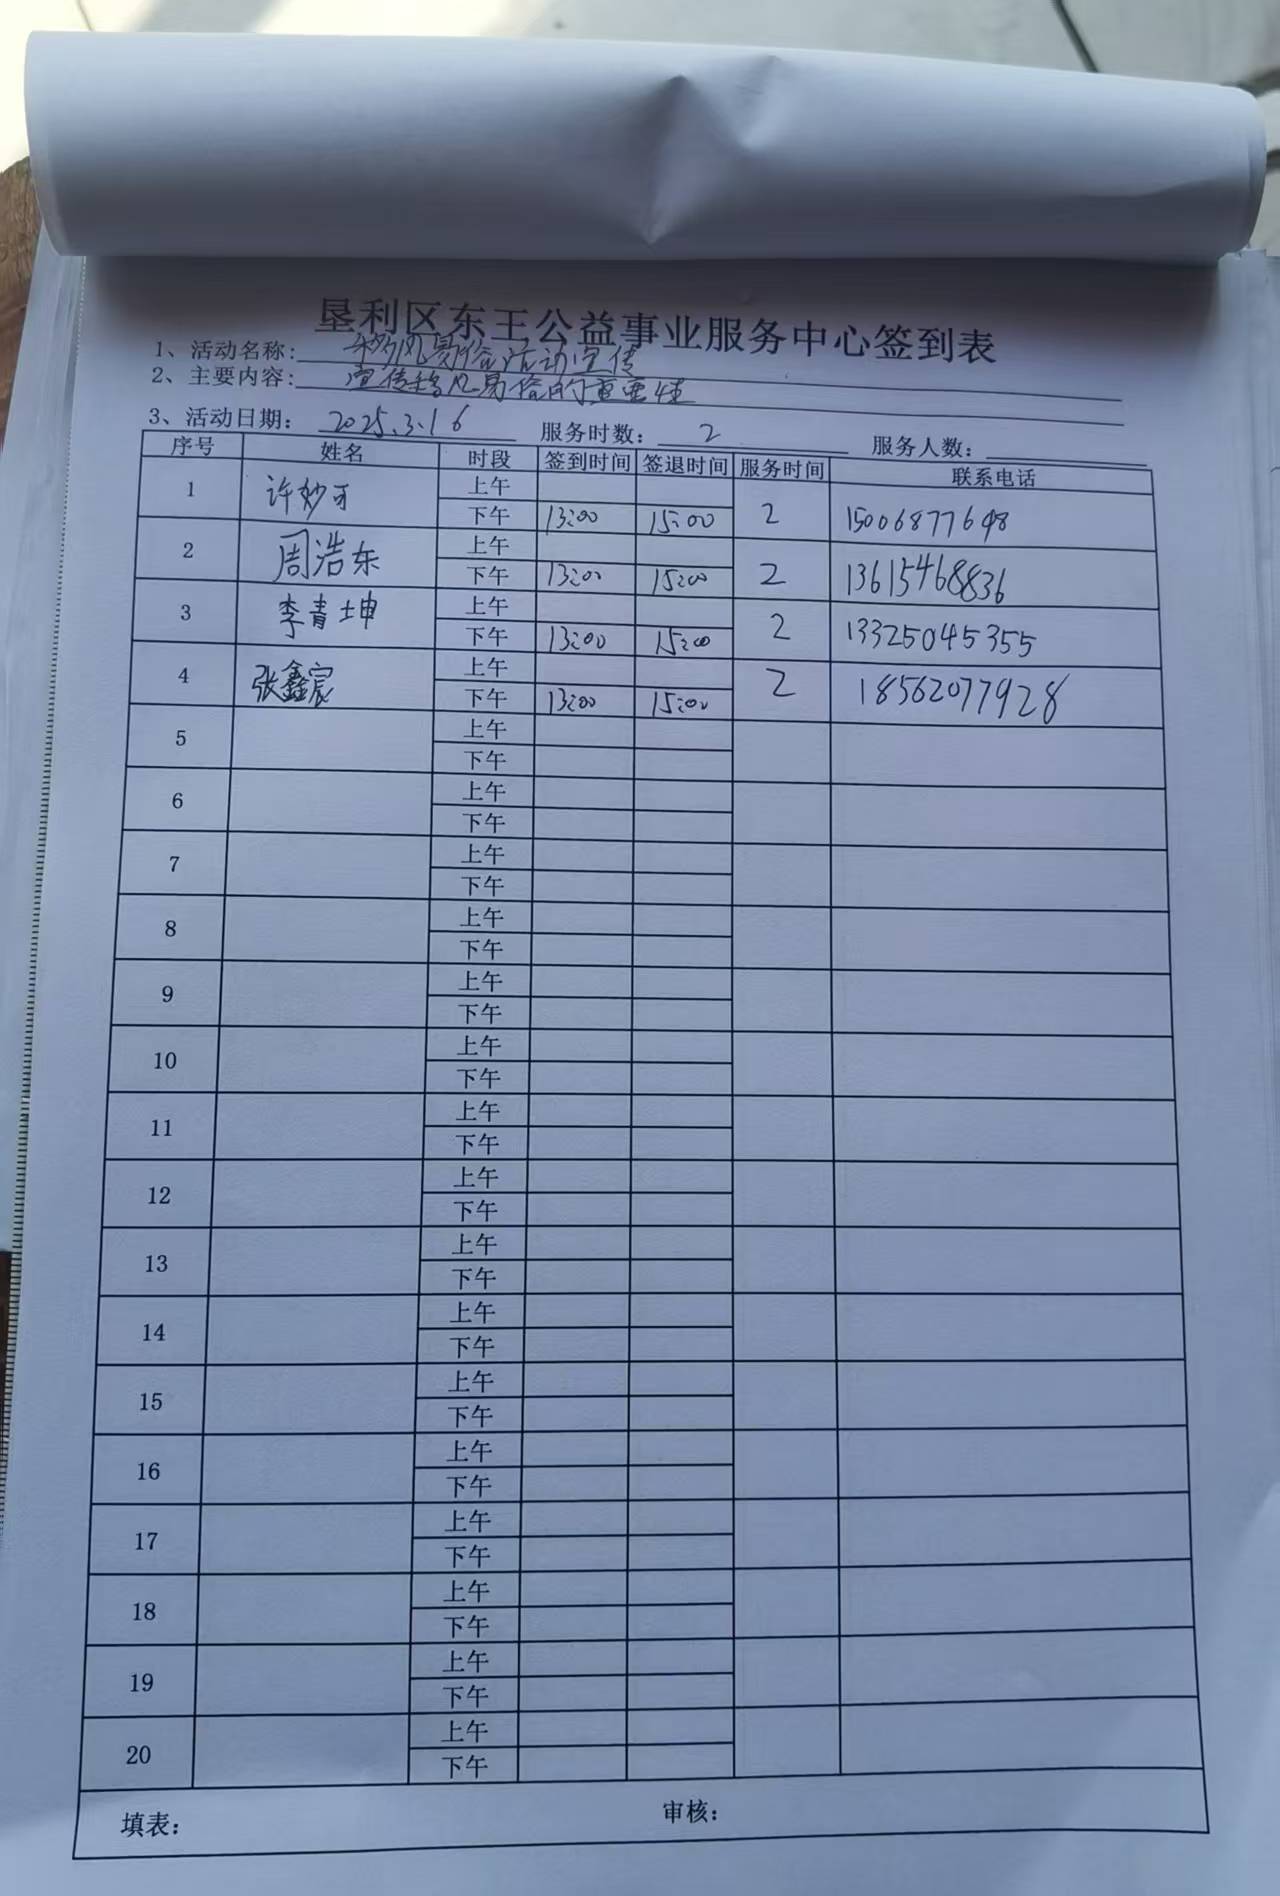 垦利区东王公益事业服务中心签到表
1、活动名称: 移风易俗活动宣传
2、主要内容: 宣传移风易俗的重要性
3、活动日期: 2025.3.16 服务时数: 2 服务人数:
序号 姓名 时段 签到时间 签退时间 服务时间 联系电话
1 许妙可 上午
下午 13:00 15:00 2 15006877698
2 周浩东 上午
下午 13:00 15:00 2 13615468836
3 李青坤 上午
下午 13:00 15:00 2 13325045355
4 张鑫宸 上午
下午 13:00 15:00 2 18562077928
5 上午
下午
6 上午
下午
7 上午
下午
8 上午
下午
9 上午
下午
10 上午
下午
11 上午
下午
12 上午
下午
13 上午
下午
14 上午
下午
15 上午
下午
16 上午
下午
17 上午
下午
18 上午
下午
19 上午
下午
20 上午
下午
填表: 审核: